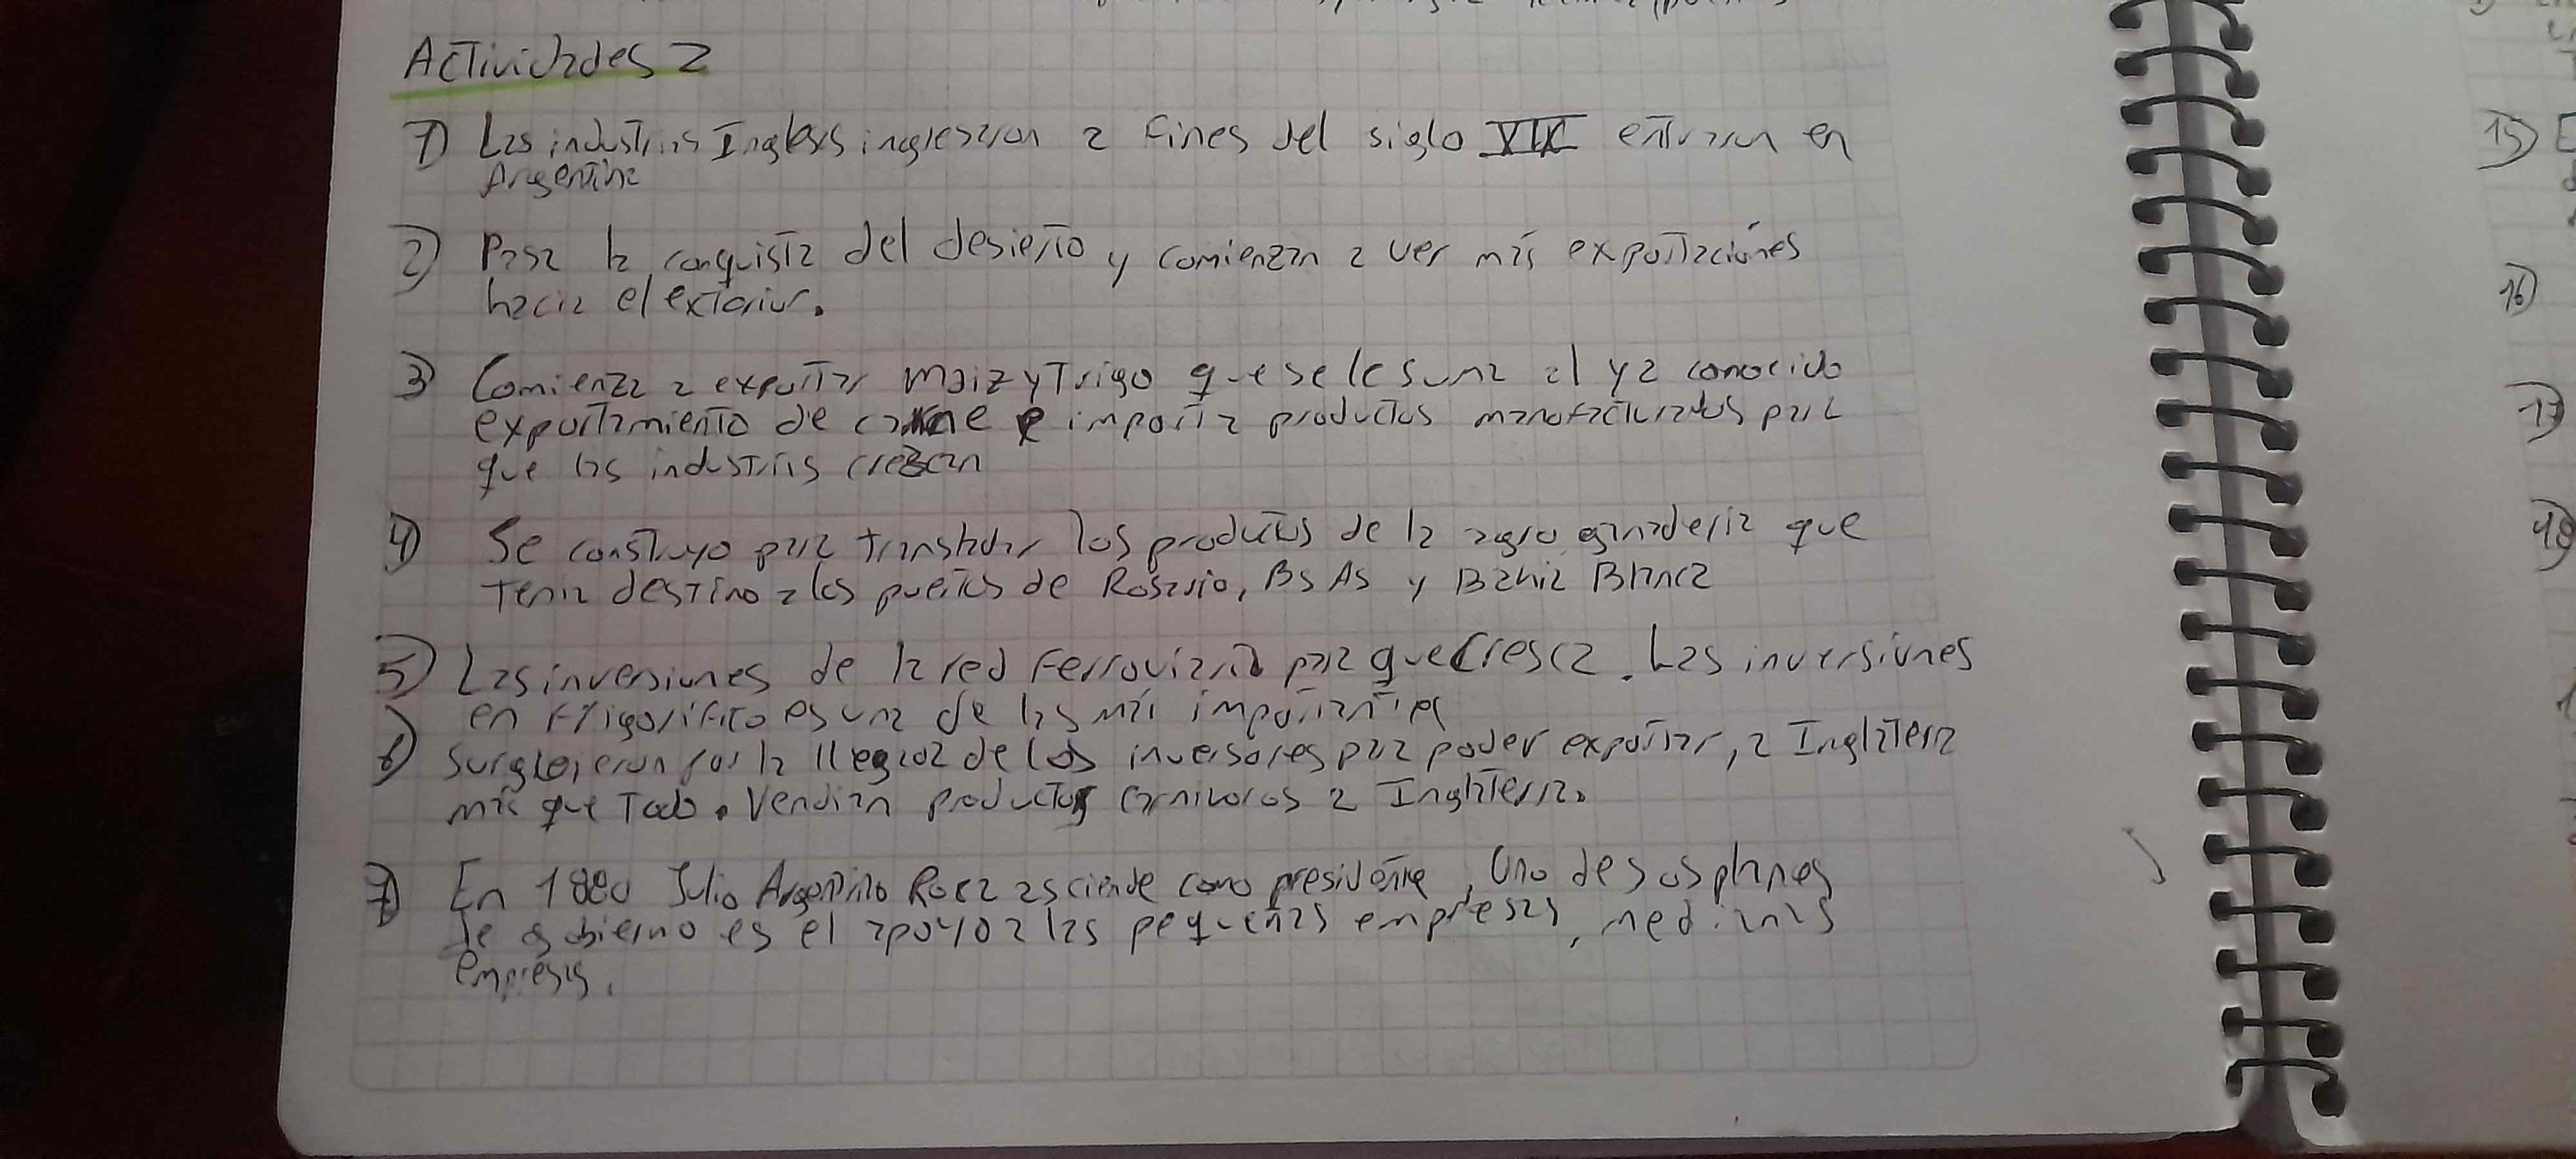 Actividades 2
1) Las industrias Inglesas ingresaron a fines del siglo VIX entraron en
Argentina
2) Pasa la conquista del desierto y comienzan a ver más exportaciónes
hacia el exterior.
3) Comienza a exportar maiz y Trigo que se le suma al ya conocido
exportamiento de carne e importa productos manofacturados para
que las industrias crescan
4) Se construyo para transladar los productos de la agro ganaderia que
tenia destino a los puertos de Rosario, Bs As y Bahia Blanca
5) Las inversiones de la red ferroviaria para que cresca. Las inversiones
en frigorifico es una de las más importantes
6) Surgieron por la llegada de los inversores para poder exportar, a Inglaterra
más que Todo. Vendian productos carnivoros a Inglaterra.
7) En 1880 Julio Argentino Roca asciende como presidente, Uno de sos planes
de gobierno es el apoyo a las pequeñas empresas, medianas
empresas.
15)
16)
17)
18)